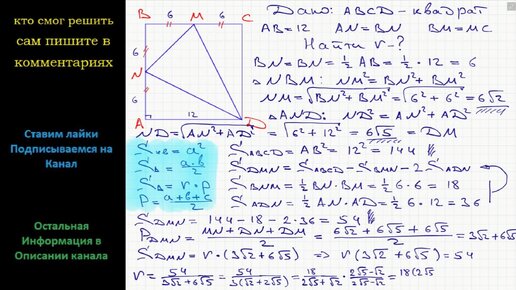 кто смог решить
сам пишите в
комментариях
Ставим лайки
Подписываемся на
Канал
Остальная
Информация в
Описании канала
B 6 M 6 C
6
N
6
A 12 D
Дано: ABCD – квадрат
AB=12 AN=BN BM=MC
Найти r-?
BN=BN=½AB=½·12=6
△NBM: NM²=BN²+BM²
NM=√BN²+BM²=√6²+6²=6√2
△AND: ND²=AN²+AD²
ND=√AN²+AD²=√6²+12²=6√5=DM
Sкв=a² SABCD=AB²=12²=144
S△=a·b/2 SDMN=SABCD-SBMN-2SADN
S△=r·p SBNM=½BN·BM=½6·6=18
P=a+b+c/2 SADN=½AN·AD=½6·12=36
SDMN=144-18-2·36=54
PDMN=MN+DN+DM/2=6√2+6√5+6√5/2=3√2+6√5
SDMN=r·(3√2+6√5) ⇒ r(3√2+6√5)=54
r=54/3√2+6√5=54/3(√2+2√5)=18/2√5+√2·2√5-√2/2√5-√2=18(2√5